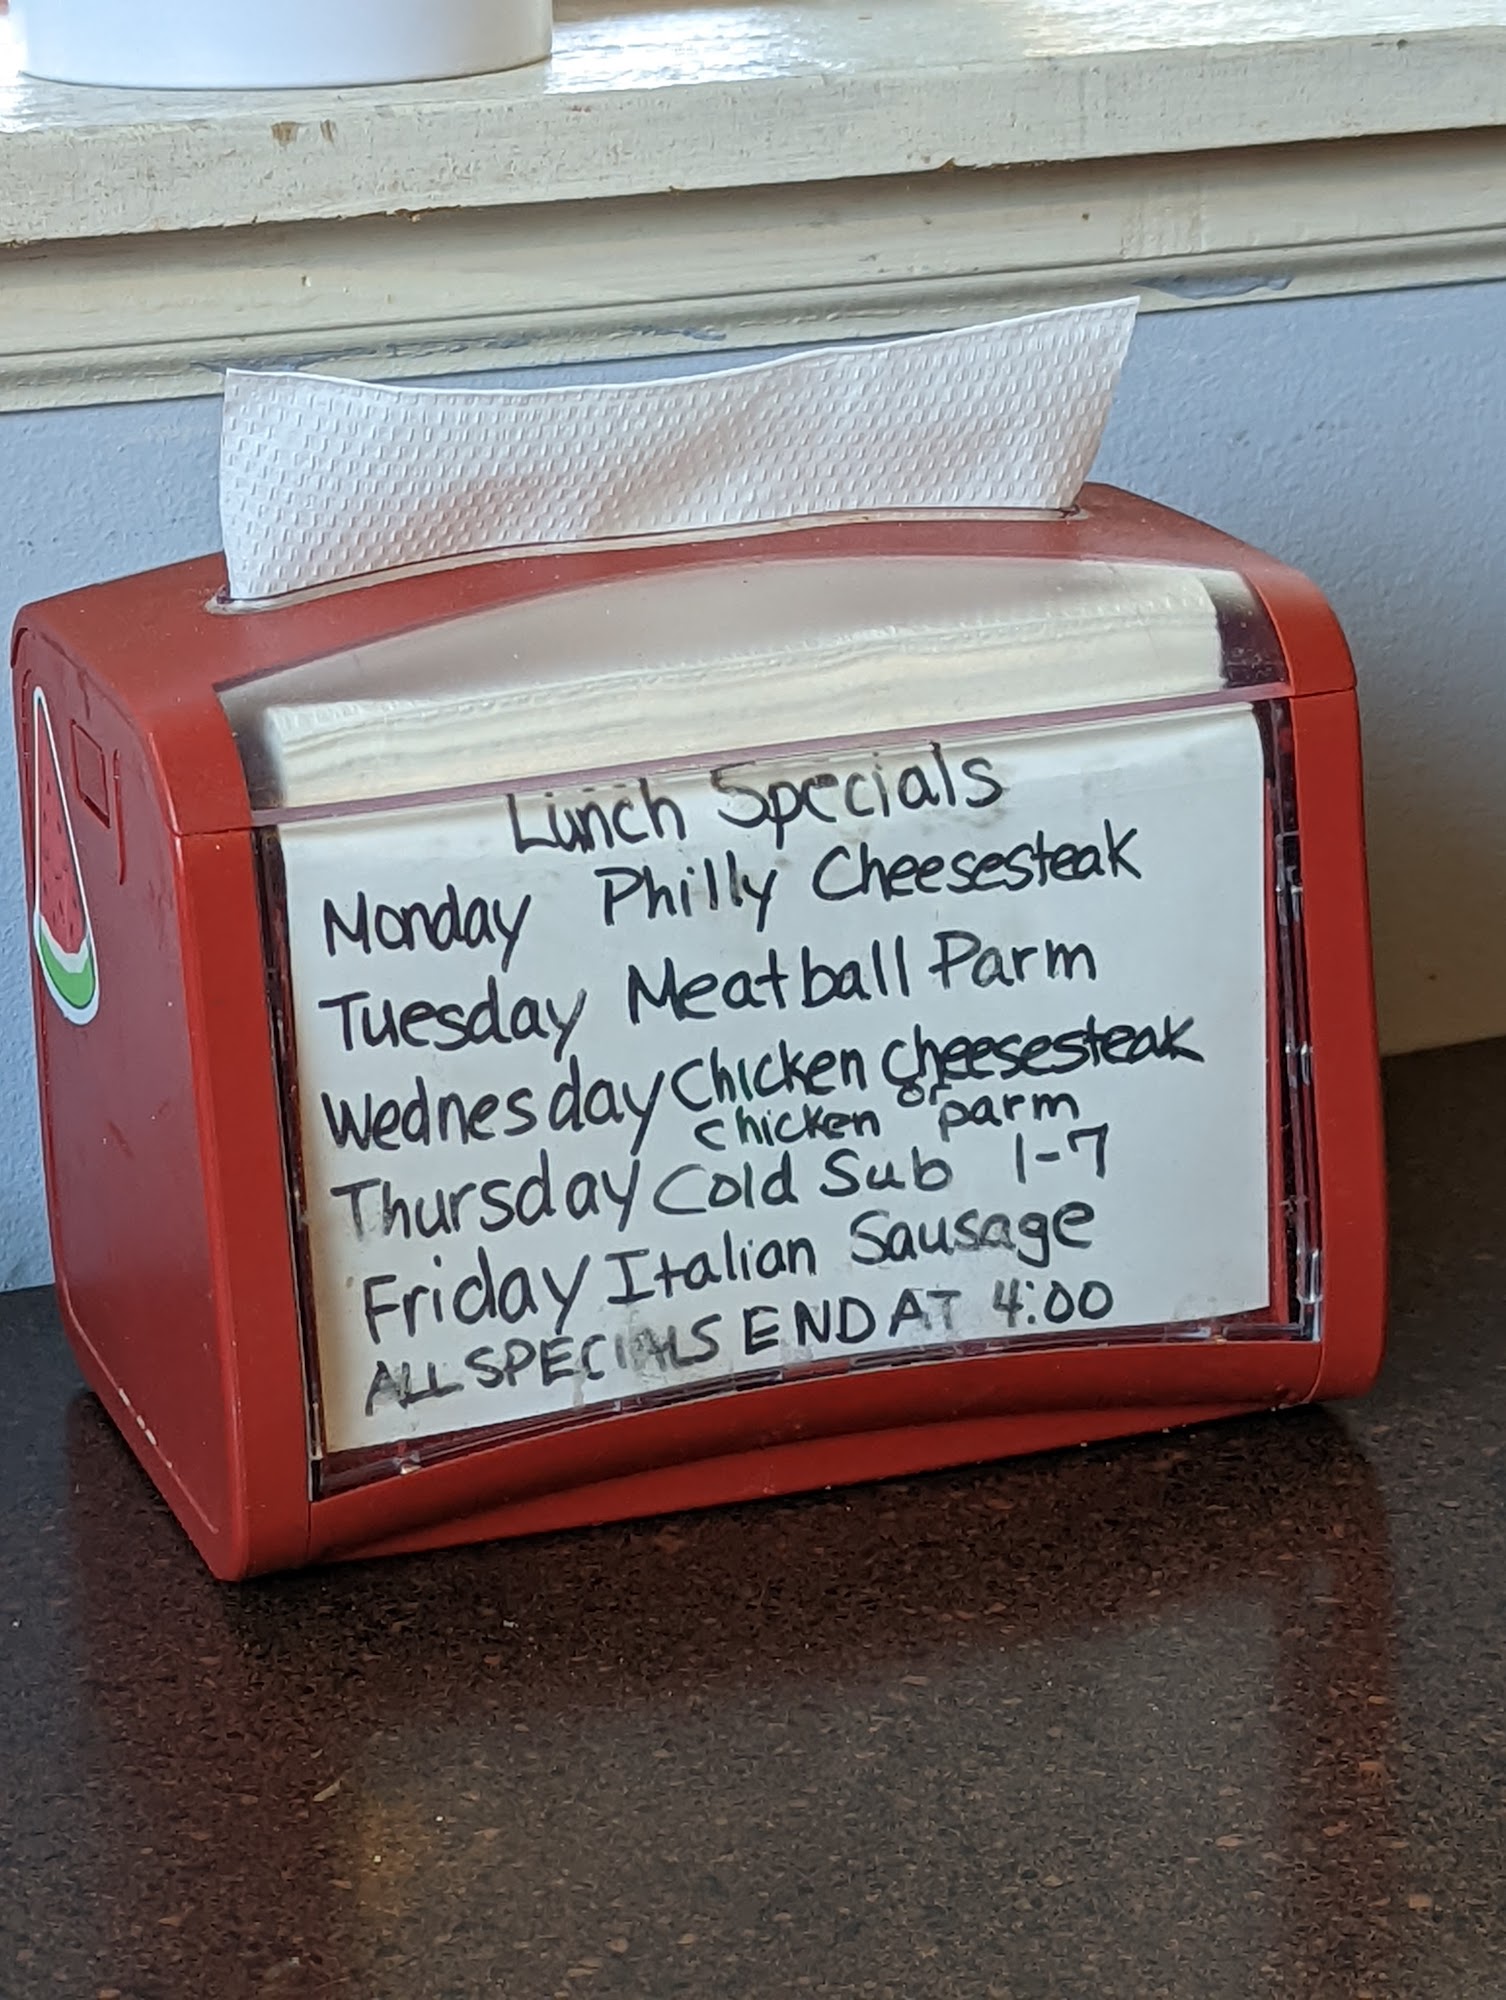 Lunch Specials
Monday Philly Cheesesteak
Tuesday Meatball Parm
Wednesday Chicken Cheesesteak
or
chicken parm
Thursday Cold Sub 1-7
Friday Italian Sausage
ALL SPECIALS END AT 4:00